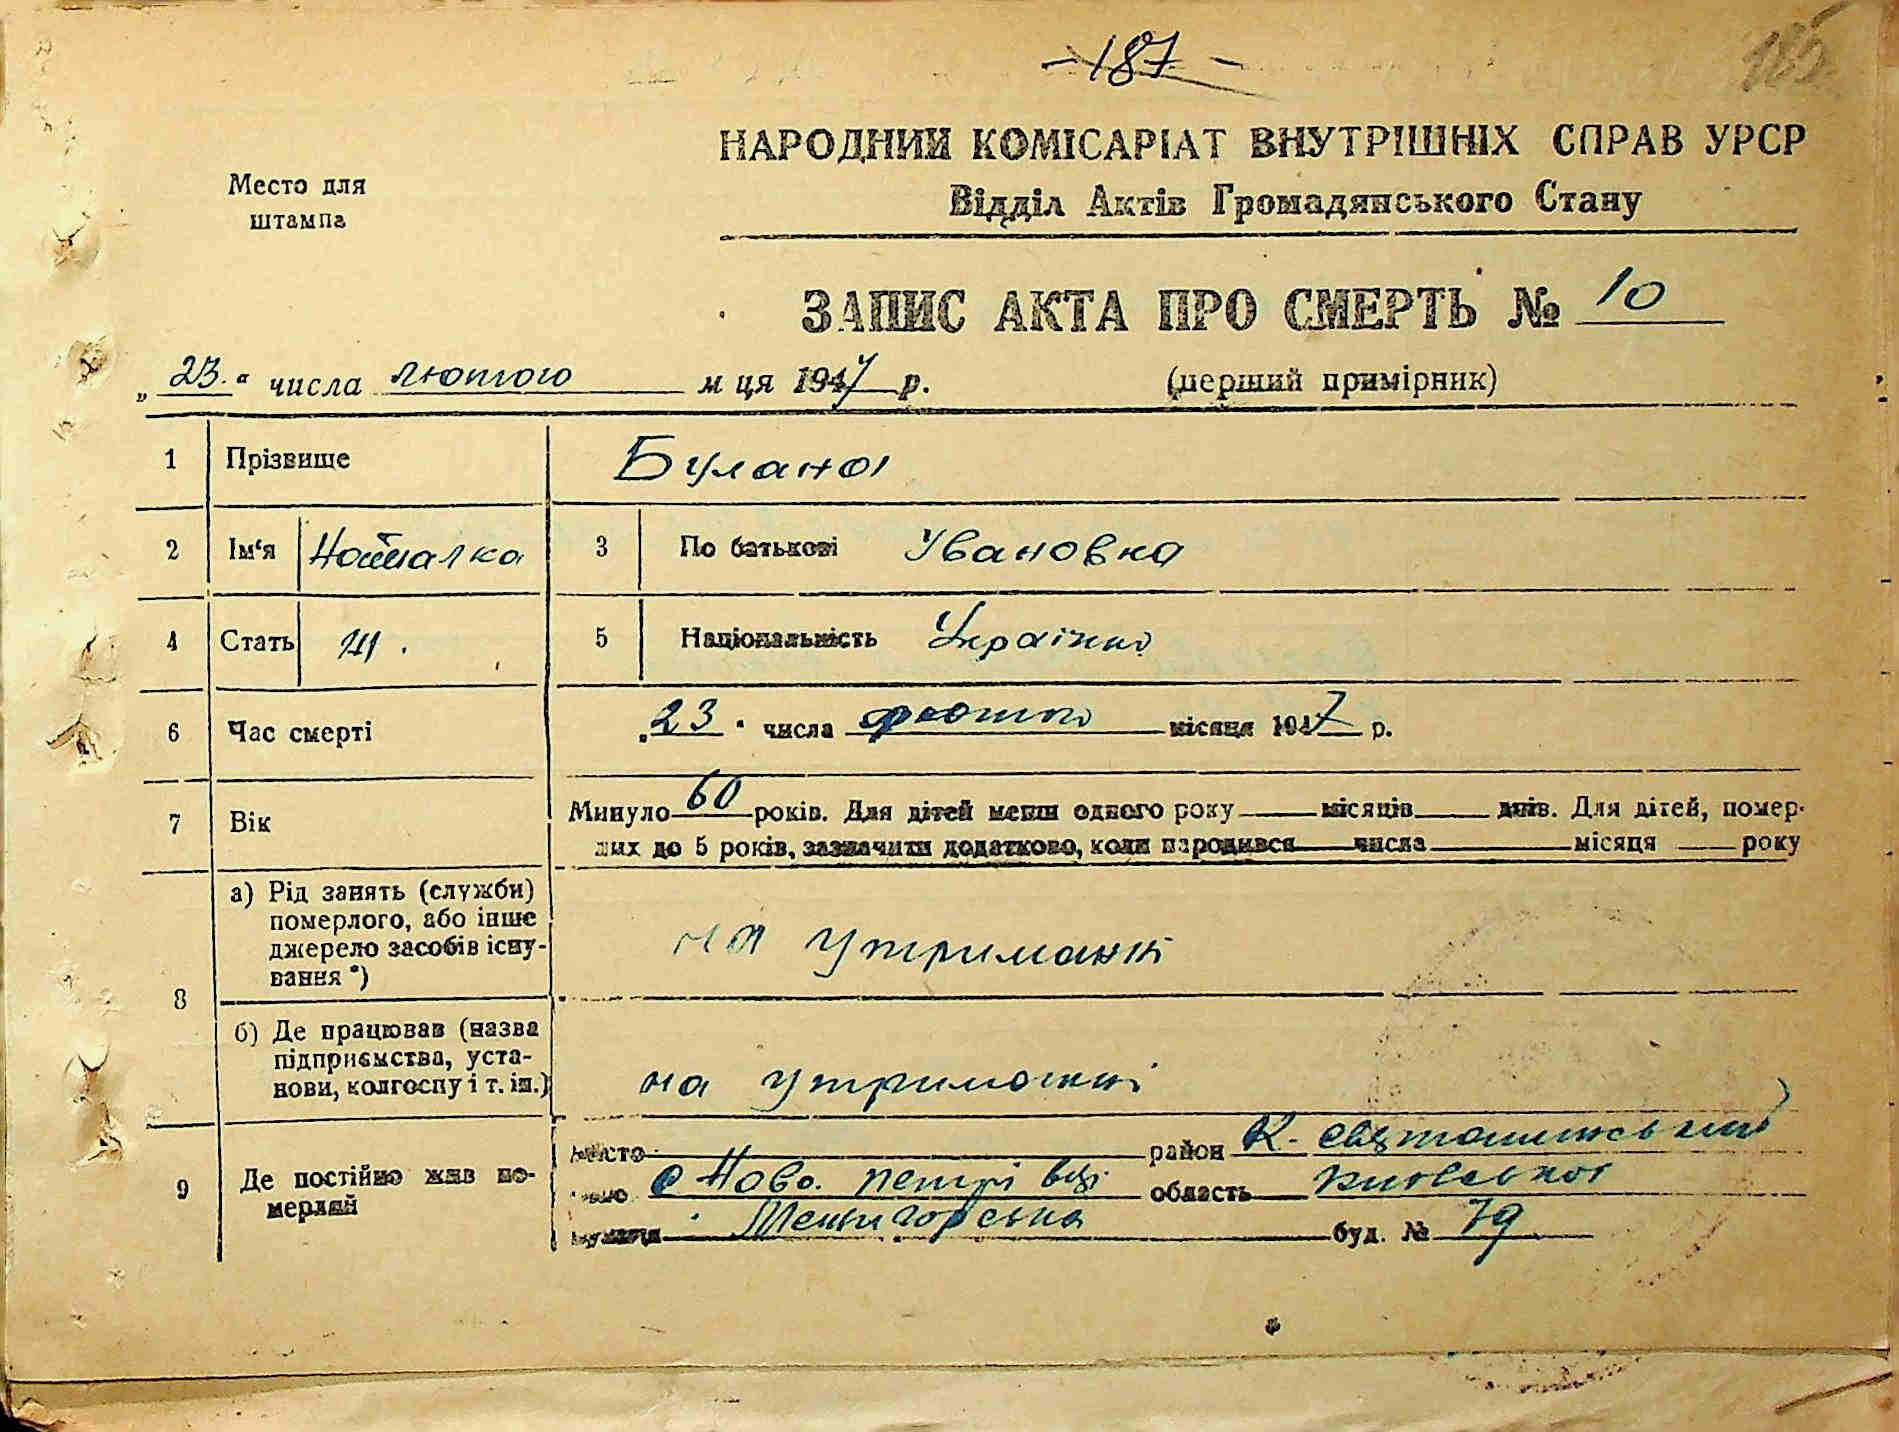 187
185
НАРОДНИЙ КОМІСАРІАТ ВНУТРІШНІХ СПРАВ УРСР
Место для
штампа
Відділ Актів Громадянського Стану
ЗАПИС АКТА ПРО СМЕРТЬ № 10
„23.“ числа лютого м ця 1947 р. (перший примірник)
1 Прізвище Булана
2 Ім'я Наталка 3 По батькові Увановка
4 Стать Ж. 5 Національність Українка
6 Час смерті „23“ числа лютого місяця 1947 р.
7 Вік Минуло 60 років. Для дітей менш одного року місяців днів. Для дітей, помер-
лих до 5 років, зазначити додатково, коли народився числа місяця року
8 а) Рід занять (служби)
померлого, або інше
джерело засобів існу-
вання *)
на утриманні
б) Де працював (назва
підприємства, уста-
нови, колгоспу і т. ін.)
на утриманні
9 Де постійно жив по-
мерлий
місто район К-Святошинський
село с Ново. петрівці область Київської
вулиця Межигорська буд. № 79